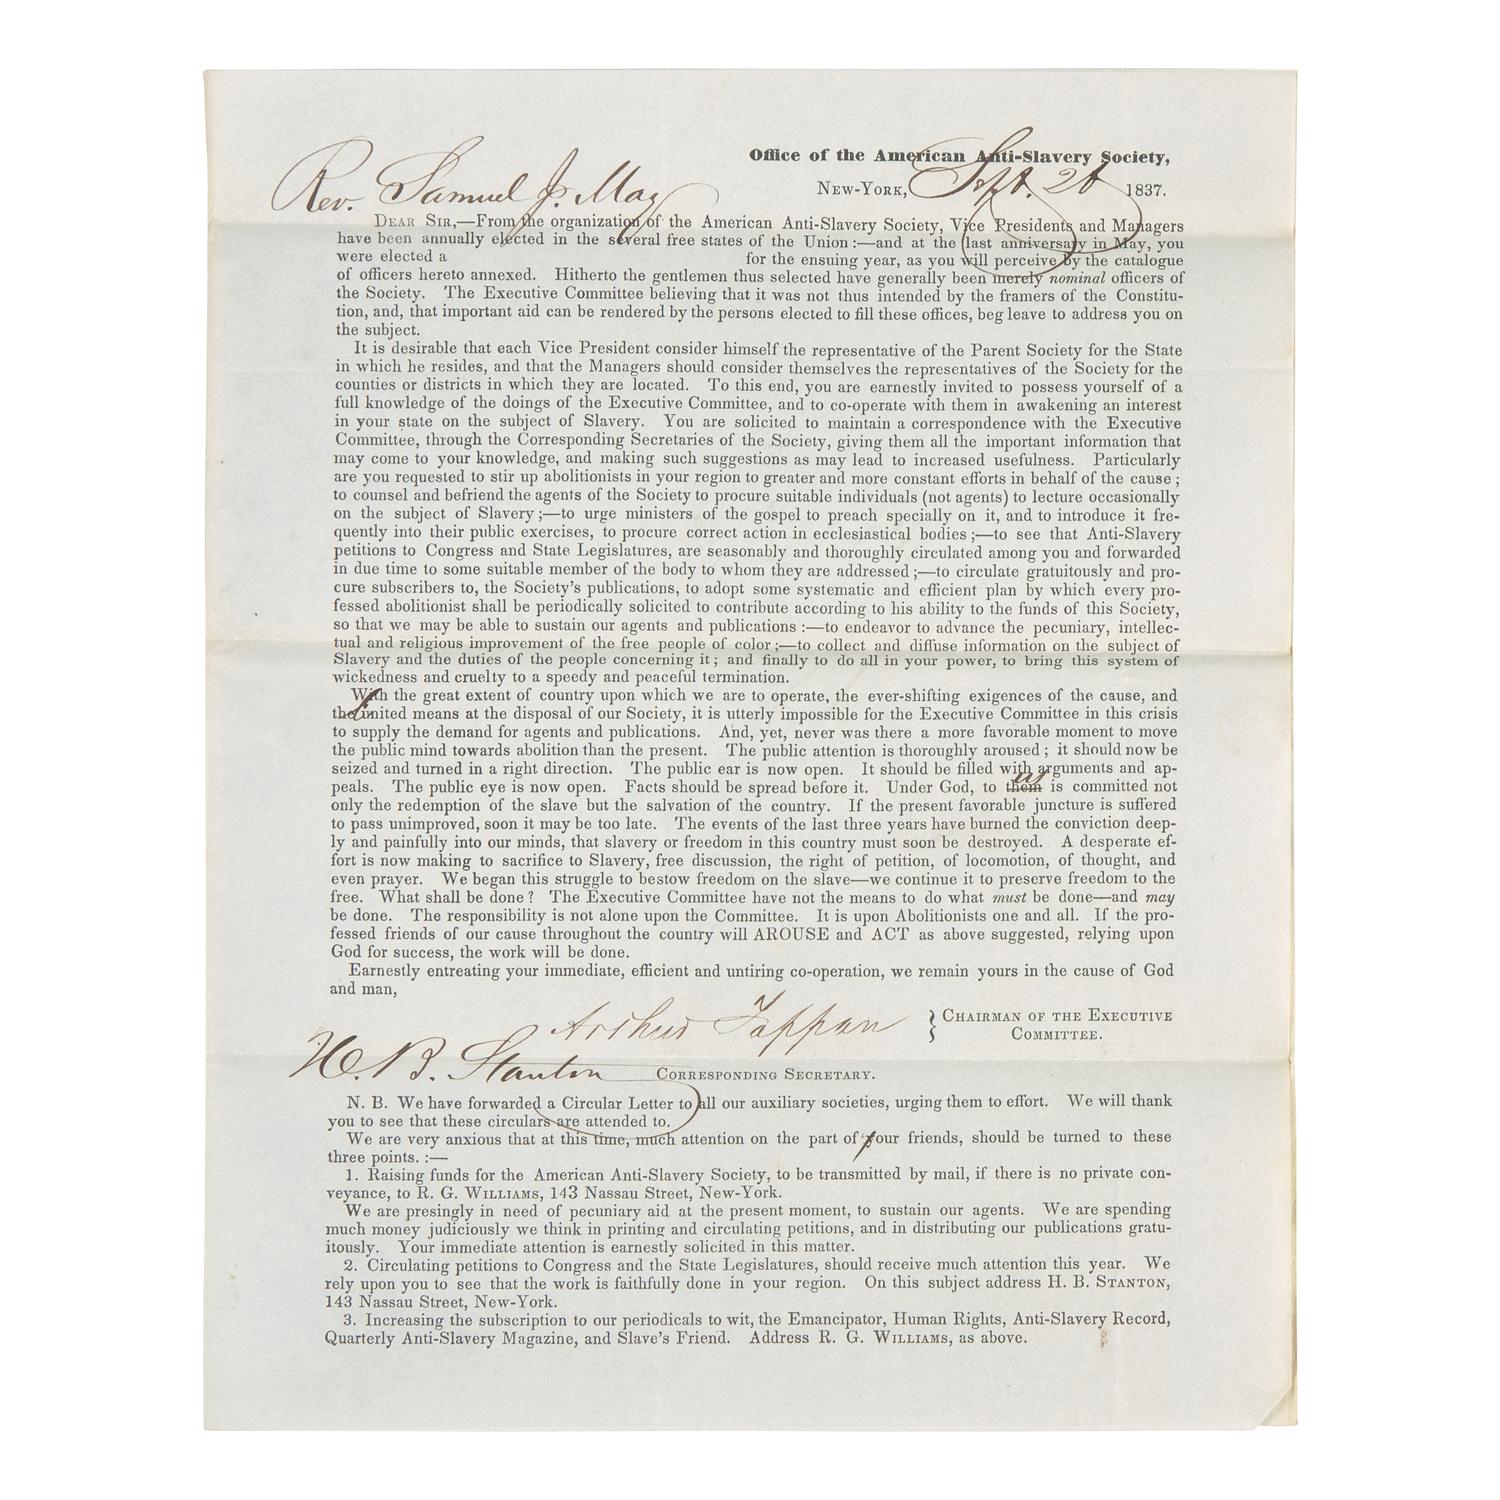 Office of the American Anti-Slavery Society,
Rev. Samuel J. May
New-York, Sept. 1837.
Dear Sir,—From the organization of the American Anti-Slavery Society, Vice Presidents and Managers
have been annually elected in the several free states of the Union:—and at the last anniversary in May, you
were elected a for the ensuing year, as you will perceive by the catalogue
of officers hereto annexed. Hitherto the gentlemen thus selected have generally been merely nominal officers of
the Society. The Executive Committee believing that it was not thus intended by the framers of the Constitu-
tion, and, that important aid can be rendered by the persons elected to fill these offices, beg leave to address you on
the subject.
It is desirable that each Vice President consider himself the representative of the Parent Society for the State
in which he resides, and that the Managers should consider themselves the representatives of the Society for the
counties or districts in which they are located. To this end, you are earnestly invited to possess yourself of a
full knowledge of the doings of the Executive Committee, and to co-operate with them in awakening an interest
in your state on the subject of Slavery. You are solicited to maintain a correspondence with the Executive
Committee, through the Corresponding Secretaries of the Society, giving them all the important information that
may come to your knowledge, and making such suggestions as may lead to increased usefulness. Particularly
are you requested to stir up abolitionists in your region to greater and more constant efforts in behalf of the cause;
to counsel and befriend the agents of the Society to procure suitable individuals (not agents) to lecture occasionally
on the subject of Slavery;—to urge ministers of the gospel to preach specially on it, and to introduce it fre-
quently into their public exercises, to procure correct action in ecclesiastical bodies;—to see that Anti-Slavery
petitions to Congress and State Legislatures, are seasonably and thoroughly circulated among you and forwarded
in due time to some suitable member of the body to whom they are addressed;—to circulate gratuitously and pro-
cure subscribers to, the Society's publications, to adopt some systematic and efficient plan by which every pro-
fessed abolitionist shall be periodically solicited to contribute according to his ability to the funds of this Society,
so that we may be able to sustain our agents and publications:—to endeavor to advance the pecuniary, intellec-
tual and religious improvement of the free people of color;—to collect and diffuse information on the subject of
Slavery and the duties of the people concerning it; and finally to do all in your power, to bring this system of
wickedness and cruelty to a speedy and peaceful termination.
With the great extent of country upon which we are to operate, the ever-shifting exigences of the cause, and
the united means at the disposal of our Society, it is utterly impossible for the Executive Committee in this crisis
to supply the demand for agents and publications. And, yet, never was there a more favorable moment to move
the public mind towards abolition than the present. The public attention is thoroughly aroused; it should now be
seized and turned in a right direction. The public ear is now open. It should be filled with arguments and ap-
peals. The public eye is now open. Facts should be spread before it. Under God, to them us is committed not
only the redemption of the slave but the salvation of the country. If the present favorable juncture is suffered
to pass unimproved, soon it may be too late. The events of the last three years have burned the conviction deep-
ly and painfully into our minds, that slavery or freedom in this country must soon be destroyed. A desperate ef-
fort is now making to sacrifice to Slavery, free discussion, the right of petition, of locomotion, of thought, and
even prayer. We began this struggle to bestow freedom on the slave—we continue it to preserve freedom to the
free. What shall be done? The Executive Committee have not the means to do what must be done—and may
be done. The responsibility is not alone upon the Committee. It is upon Abolitionists one and all. If the pro-
fessed friends of our cause throughout the country will AROUSE and ACT as above suggested, relying upon
God for success, the work will be done.
Earnestly entreating your immediate, efficient and untiring co-operation, we remain yours in the cause of God
and man,
Arthur Tappan } Chairman of the Executive
Committee.
H. B. Stanton Corresponding Secretary.
N. B. We have forwarded a Circular Letter to all our auxiliary societies, urging them to effort. We will thank
you to see that these circulars are attended to.
We are very anxious that at this time, much attention on the part of our friends, should be turned to these
three points. :—
1. Raising funds for the American Anti-Slavery Society, to be transmitted by mail, if there is no private con-
veyance, to R. G. Williams, 143 Nassau Street, New-York.
We are presingly in need of pecuniary aid at the present moment, to sustain our agents. We are spending
much money judiciously we think in printing and circulating petitions, and in distributing our publications gratu-
itously. Your immediate attention is earnestly solicited in this matter.
2. Circulating petitions to Congress and the State Legislatures, should receive much attention this year. We
rely upon you to see that the work is faithfully done in your region. On this subject address H. B. Stanton,
143 Nassau Street, New-York.
3. Increasing the subscription to our periodicals to wit, the Emancipator, Human Rights, Anti-Slavery Record,
Quarterly Anti-Slavery Magazine, and Slave's Friend. Address R. G. Williams, as above.